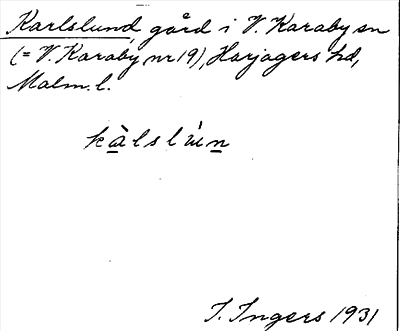 Karlslund, gård i V. Karaby sn
(= V. Karaby nr 19), Harjagers hd,
Malm. l.
I. Ingers 1931